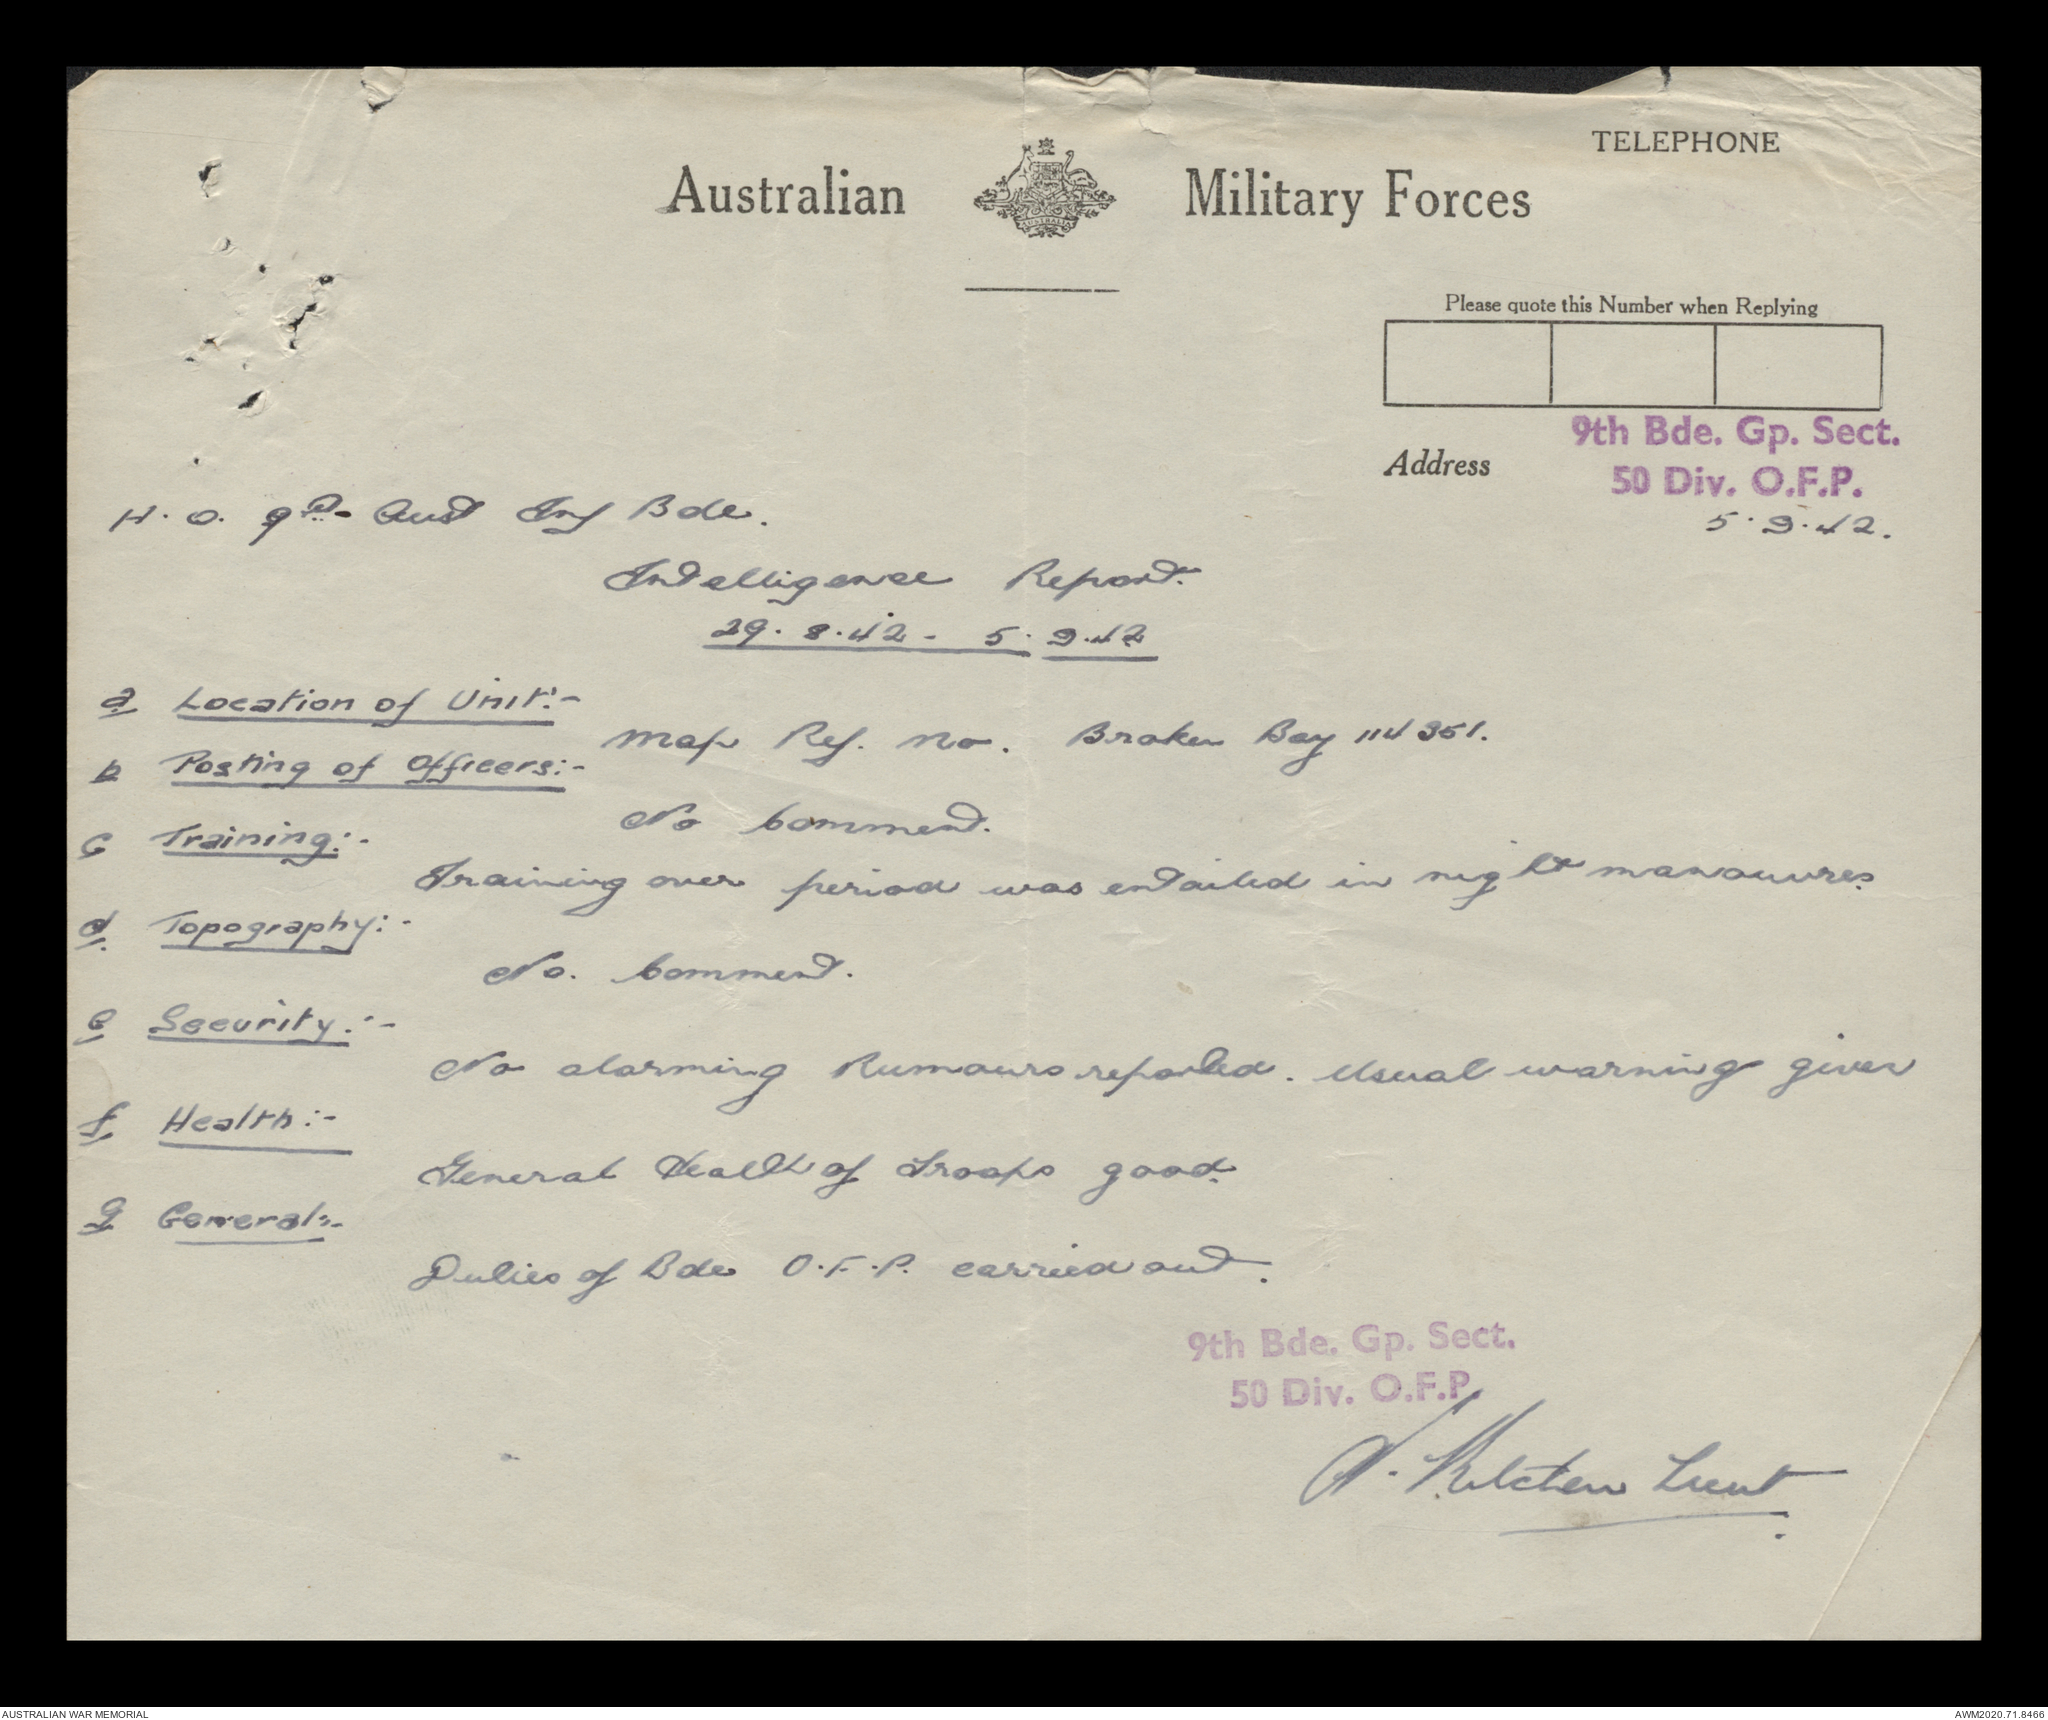 TELEPHONE
Australian Military Forces
AUSTRALIA
Please quote this Number when Replying
9th Bde. Gp. Sect.
Address
50 Div. O.F.P.
5.9.42.
H.Q. 9th Aust Inf Bde.
Intelligence Report.
29.8.42 - 5.9.42
a Location of Unit:-
Map Ref. No. Broken Bay 114351.
b Posting of Officers:-
No Comment.
c Training:-
Training over period was entailed in night manouvres
d. Topography:-
No. Comment.
e Security:-
No alarming Rumours reported. Usual warning given
f Health:-
General Health of Troops good.
g General:-
Duties of Bde O.F.P. carried out.
9th Bde. Gp. Sect.
50 Div. O.F.P.
Lieut
AUSTRALIAN WAR MEMORIAL
AWM2020.71.8466